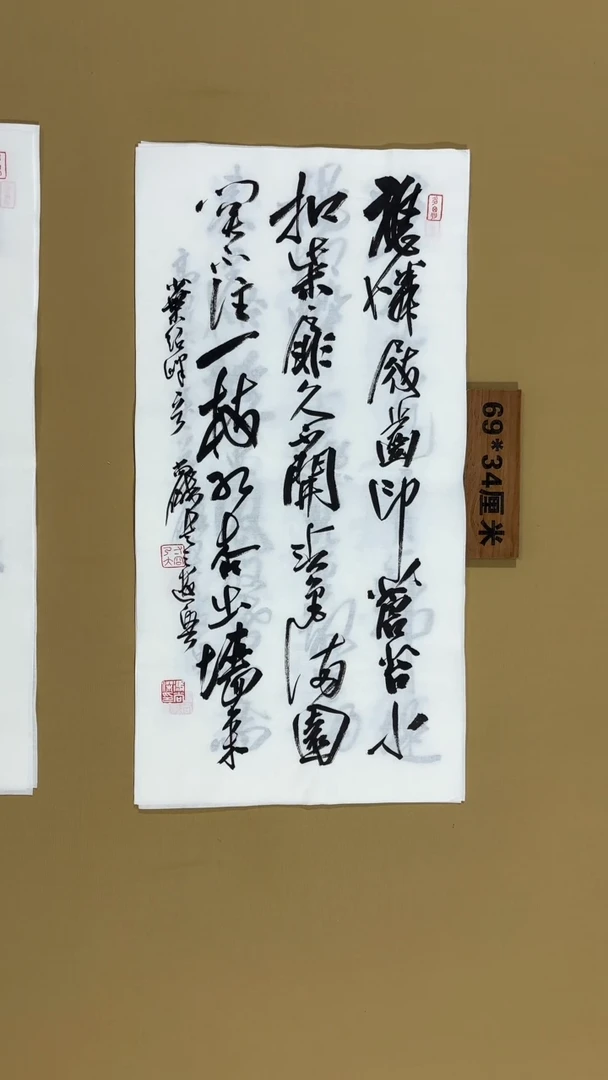 應憐屐齒印蒼苔小
扣柴扉久不開春色滿園
關不住一枝紅杏出墻來
葉紹
69*34厘米